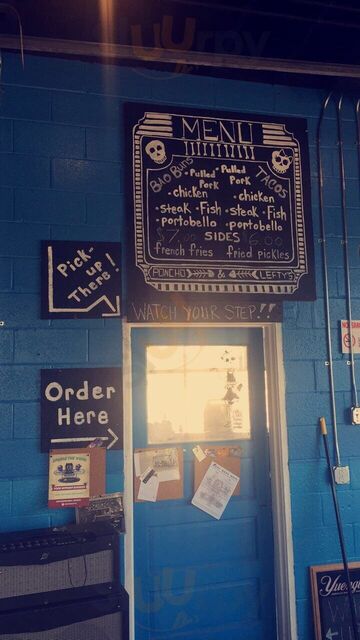 MENU
BAO BUNS
TACOS
• Pulled Pork
• Pulled Pork
• chicken
• chicken
• steak • Fish
• steak • Fish
• portobello
• portobello
SIDES
french fries
fried pickles
PONCHO & LEFTY'S
WATCH YOUR STEP!!
Pick-
up!
There!
Order
Here
Yueng